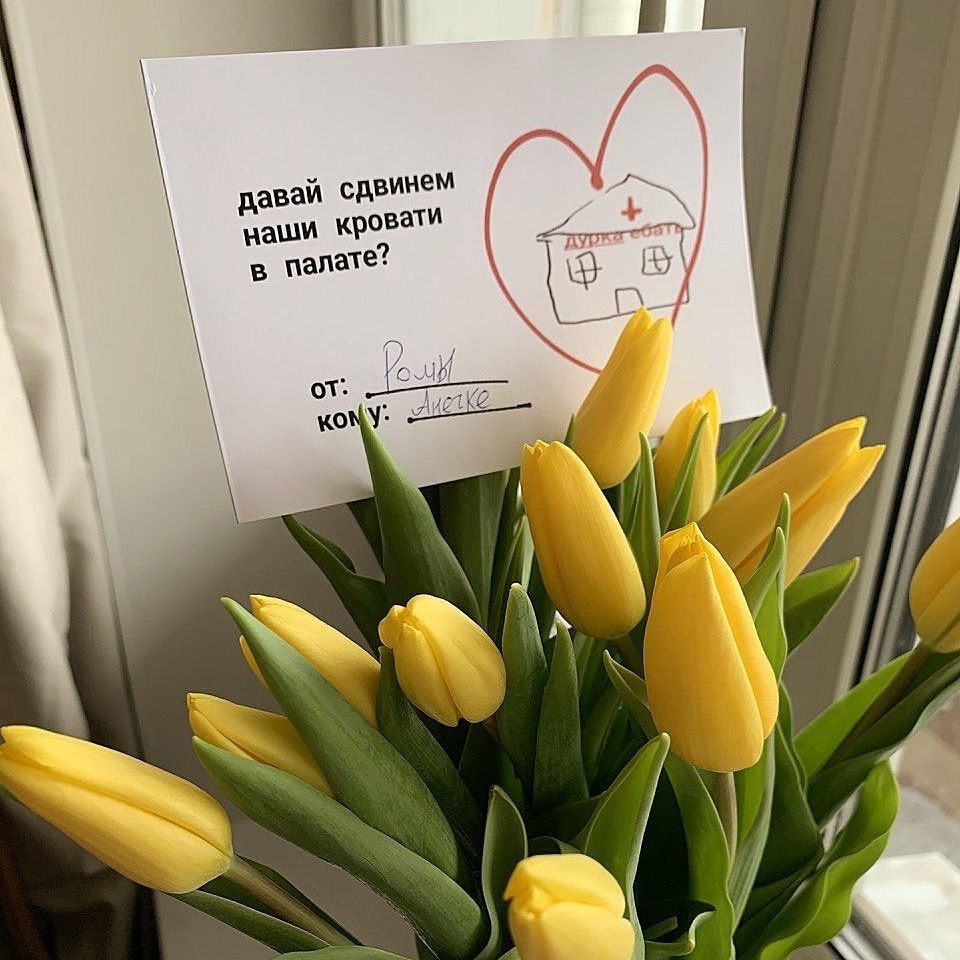 давай сдвинем
наши кровати
в палате?
дурка ебать
от: Ромы
кому: Анечке